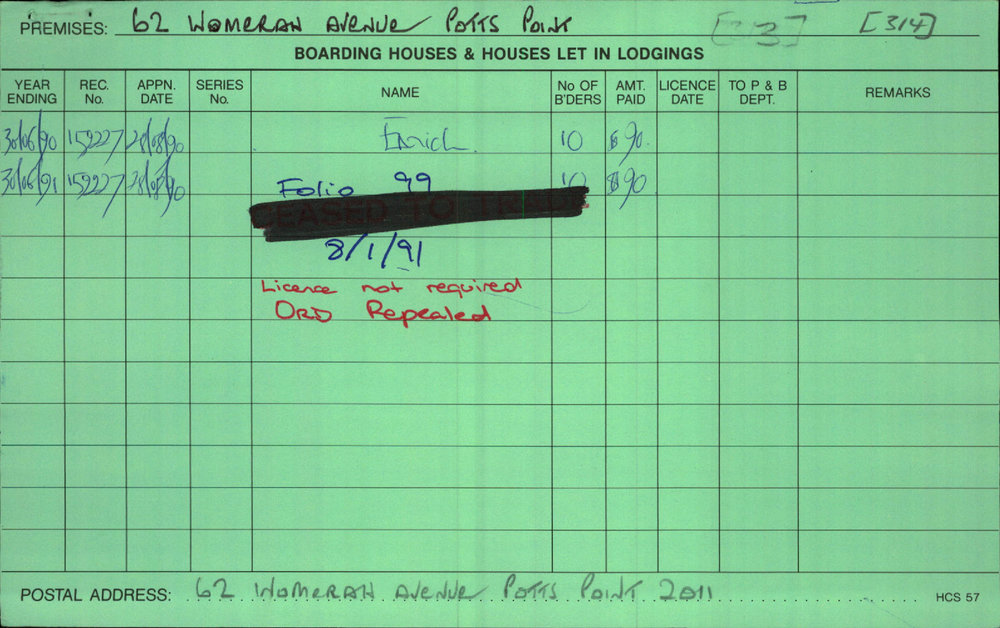 PREMISES: 62 WOMERAH AVENUE POTTS POINT [314]
BOARDING HOUSES & HOUSES LET IN LODGINGS
YEAR ENDING REC. No. APPN. DATE SERIES No. NAME No OF B'DERS AMT. PAID LICENCE DATE TO P & B DEPT. REMARKS
30/06/90 159227 28/08/90 10 $90.
30/06/91 159227 28/08/90 10 $90
Folio 99
CEASED TO TRADE
8/1/91
Licence not required
ORD Repealed
POSTAL ADDRESS: 62 WOMERAH AVENUE POTTS POINT 2011 HCS 57